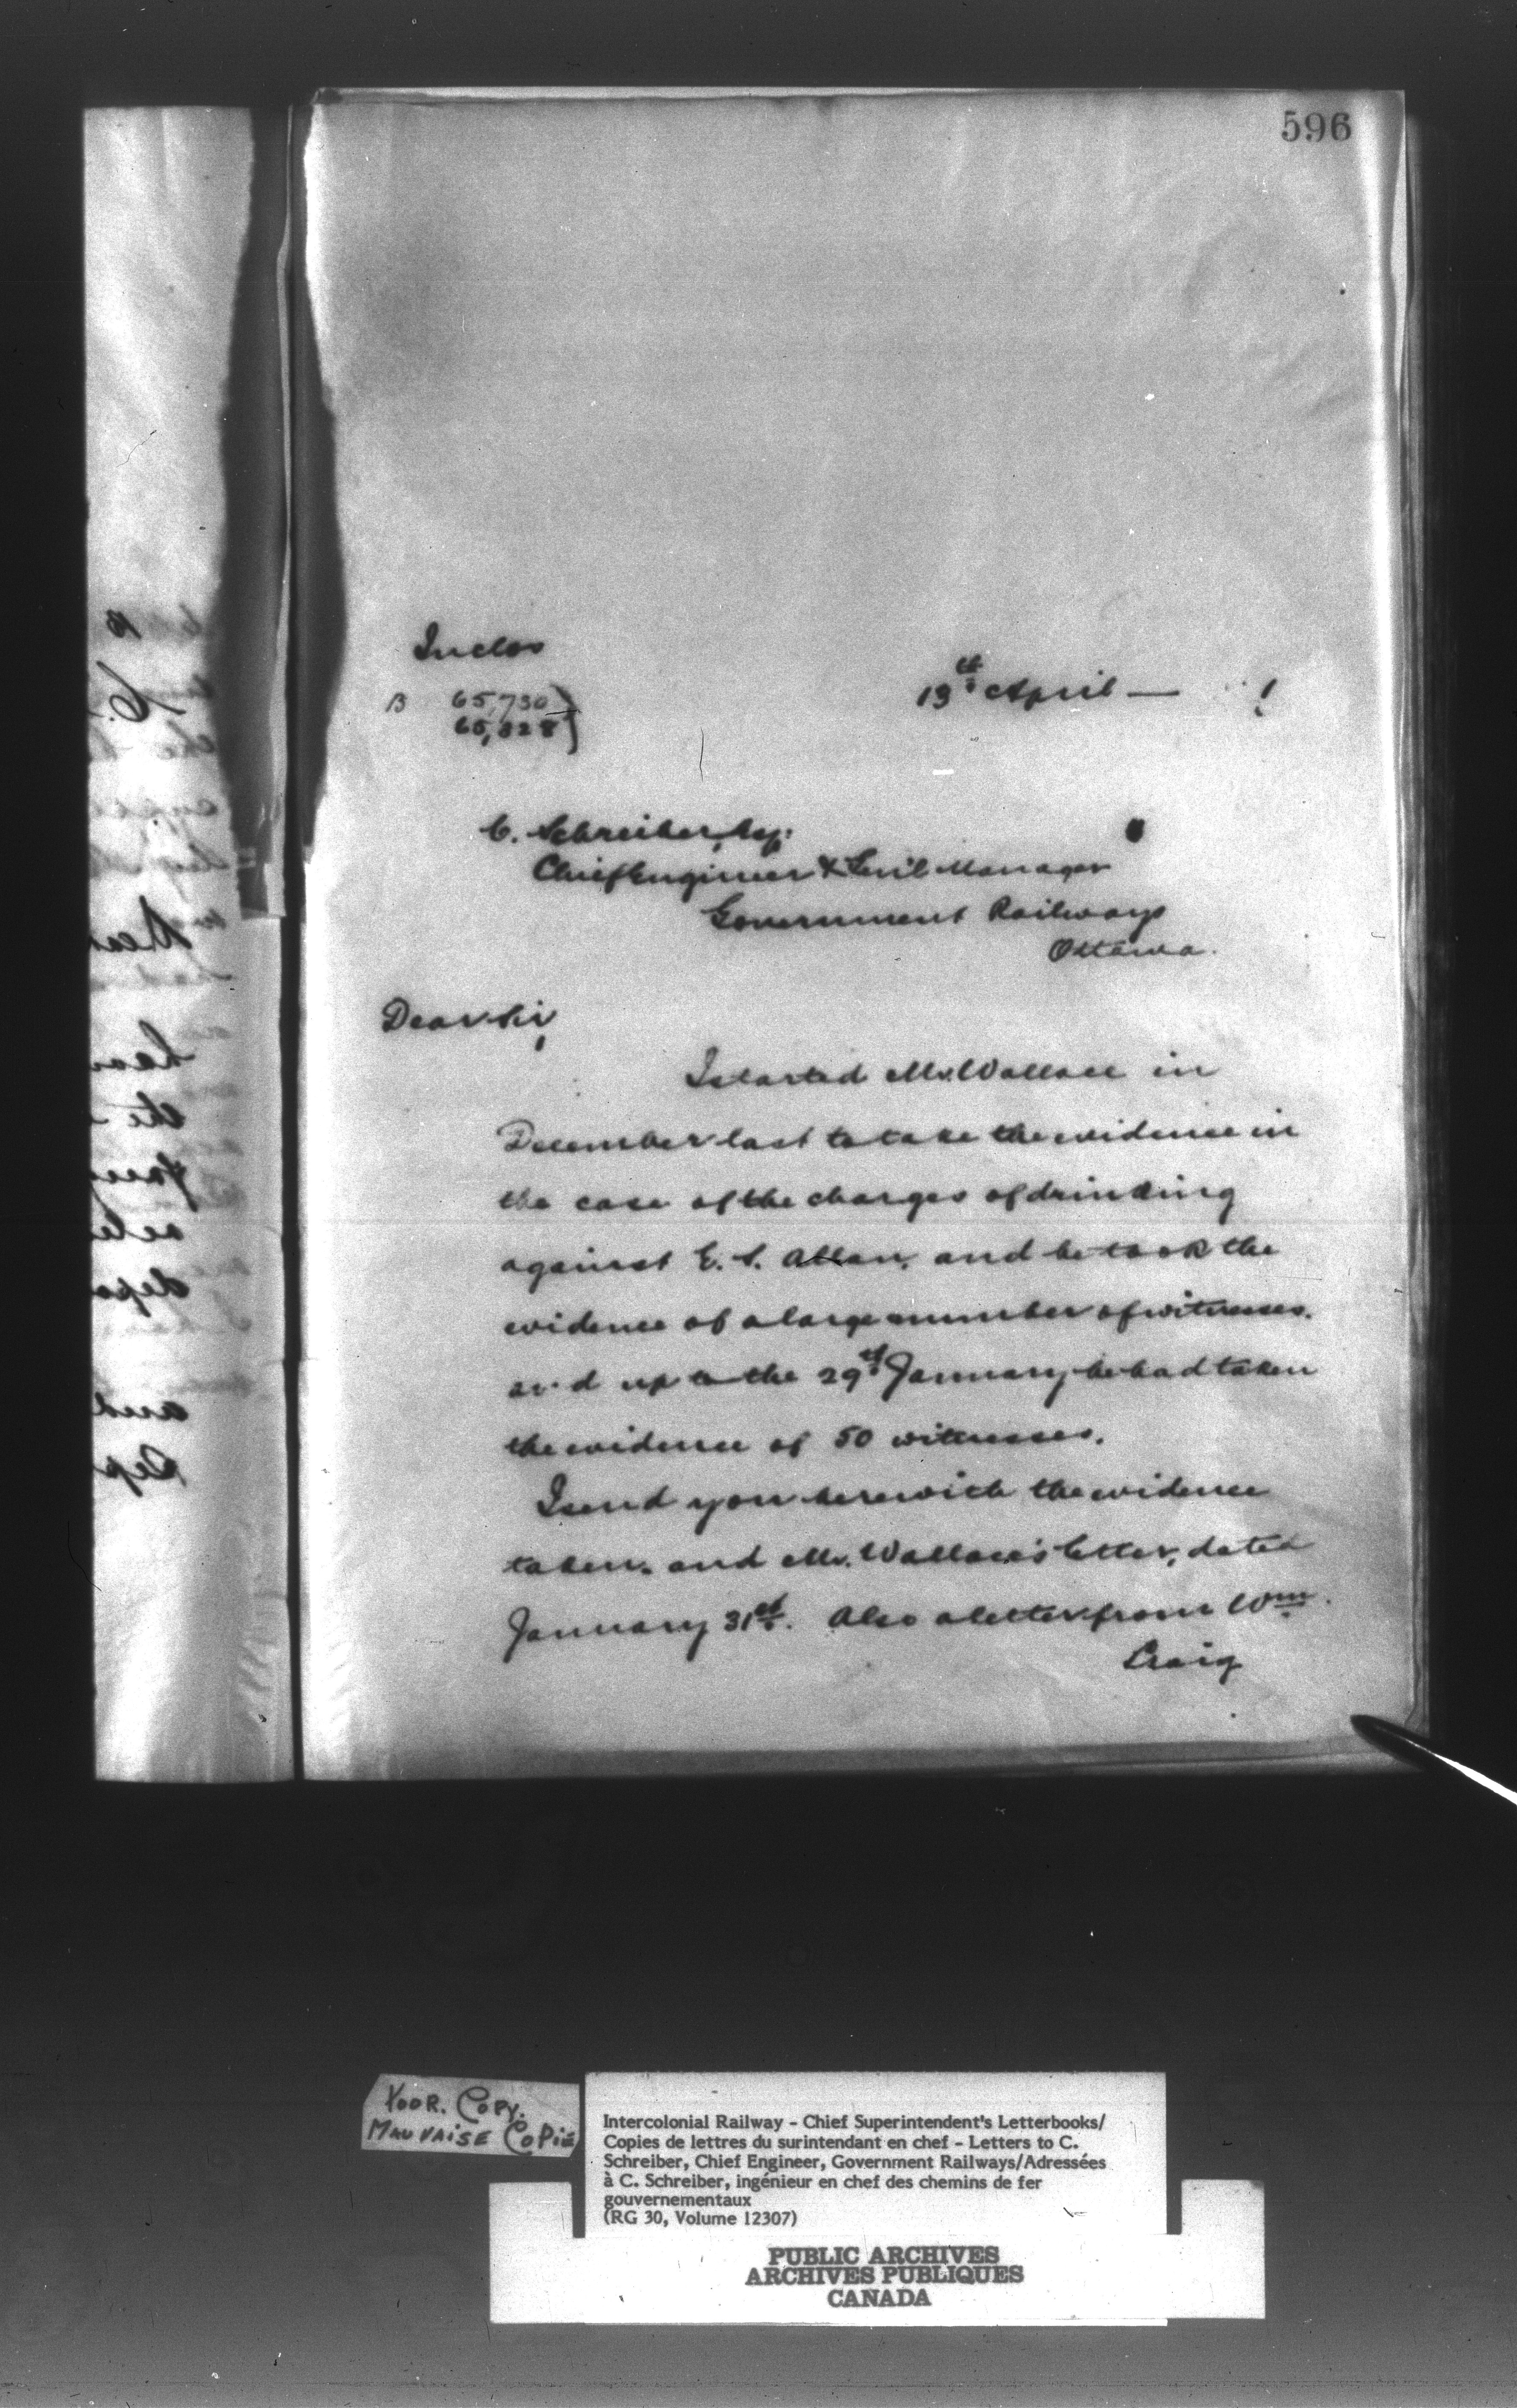 596
Inclos
B 65,730
65,828
13th April —
C. Schreiber, Esq:
Chief Engineer & Genl Manager
Government Railways
Ottawa.
Dear Sir,
I started Mr. Wallace in
December last to take the evidence in
the case of the charges of drinking
against E. S. Allan, and he took the
evidence of a large number of witnesses.
and up to the 29th January he had taken
the evidence of 50 witnesses.
I send you herewith the evidence
taken, and Mr. Wallace's letter, dated
January 31st. Also a letter from Wm.
Craig
POOR. COPY.
MAUVAISE COPIE
Intercolonial Railway - Chief Superintendent's Letterbooks/
Copies de lettres du surintendant en chef - Letters to C.
Schreiber, Chief Engineer, Government Railways/Adressées
à C. Schreiber, ingénieur en chef des chemins de fer
gouvernementaux
(RG 30, Volume 12307)
PUBLIC ARCHIVES
ARCHIVES PUBLIQUES
CANADA